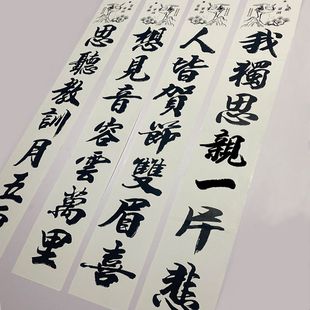 我獨思親一片
人皆賀節雙眉喜
想見音容雲萬里
思聽教訓月五